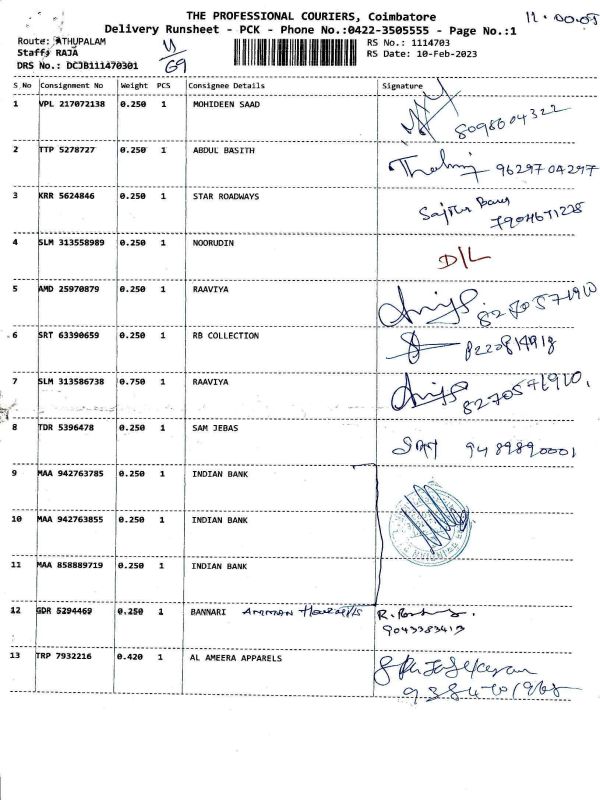 THE PROFESSIONAL COURIERS, Coimbatore
Delivery Runsheet - PCK - Phone No.:0422-3505555 - Page No.:1
Route: ATHUPALAM
Staff: RAJA
DRS No.: DCJB111470301
RS No.: 1114703
RS Date: 10-Feb-2023
S No Consignment No Weight PCS Consignee Details Signature
1 VPL 217072138 0.250 1 MOHIDEEN SAAD 8098604322
2 TTP 5278727 0.250 1 ABDUL BASITH 9629704297
3 KRR 5624846 0.250 1 STAR ROADWAYS
4 SLM 313558989 0.250 1 NOORUDIN D/L
5 AMD 25970879 0.250 1 RAAVIYA 8270571910
6 SRT 63390659 0.250 1 RB COLLECTION
7 SLM 313586738 0.750 1 RAAVIYA 8270571910,
8 TDR 5396478 0.250 1 SAM JEBAS SAM 9489890001
9 MAA 942763785 0.250 1 INDIAN BANK
10 MAA 942763855 0.250 1 INDIAN BANK
11 MAA 858889719 0.250 1 INDIAN BANK
12 GDR 5294469 0.250 1 BANNARI AMMAN
9043383413
13 TRP 7932216 0.420 1 AL AMEERA APPARELS